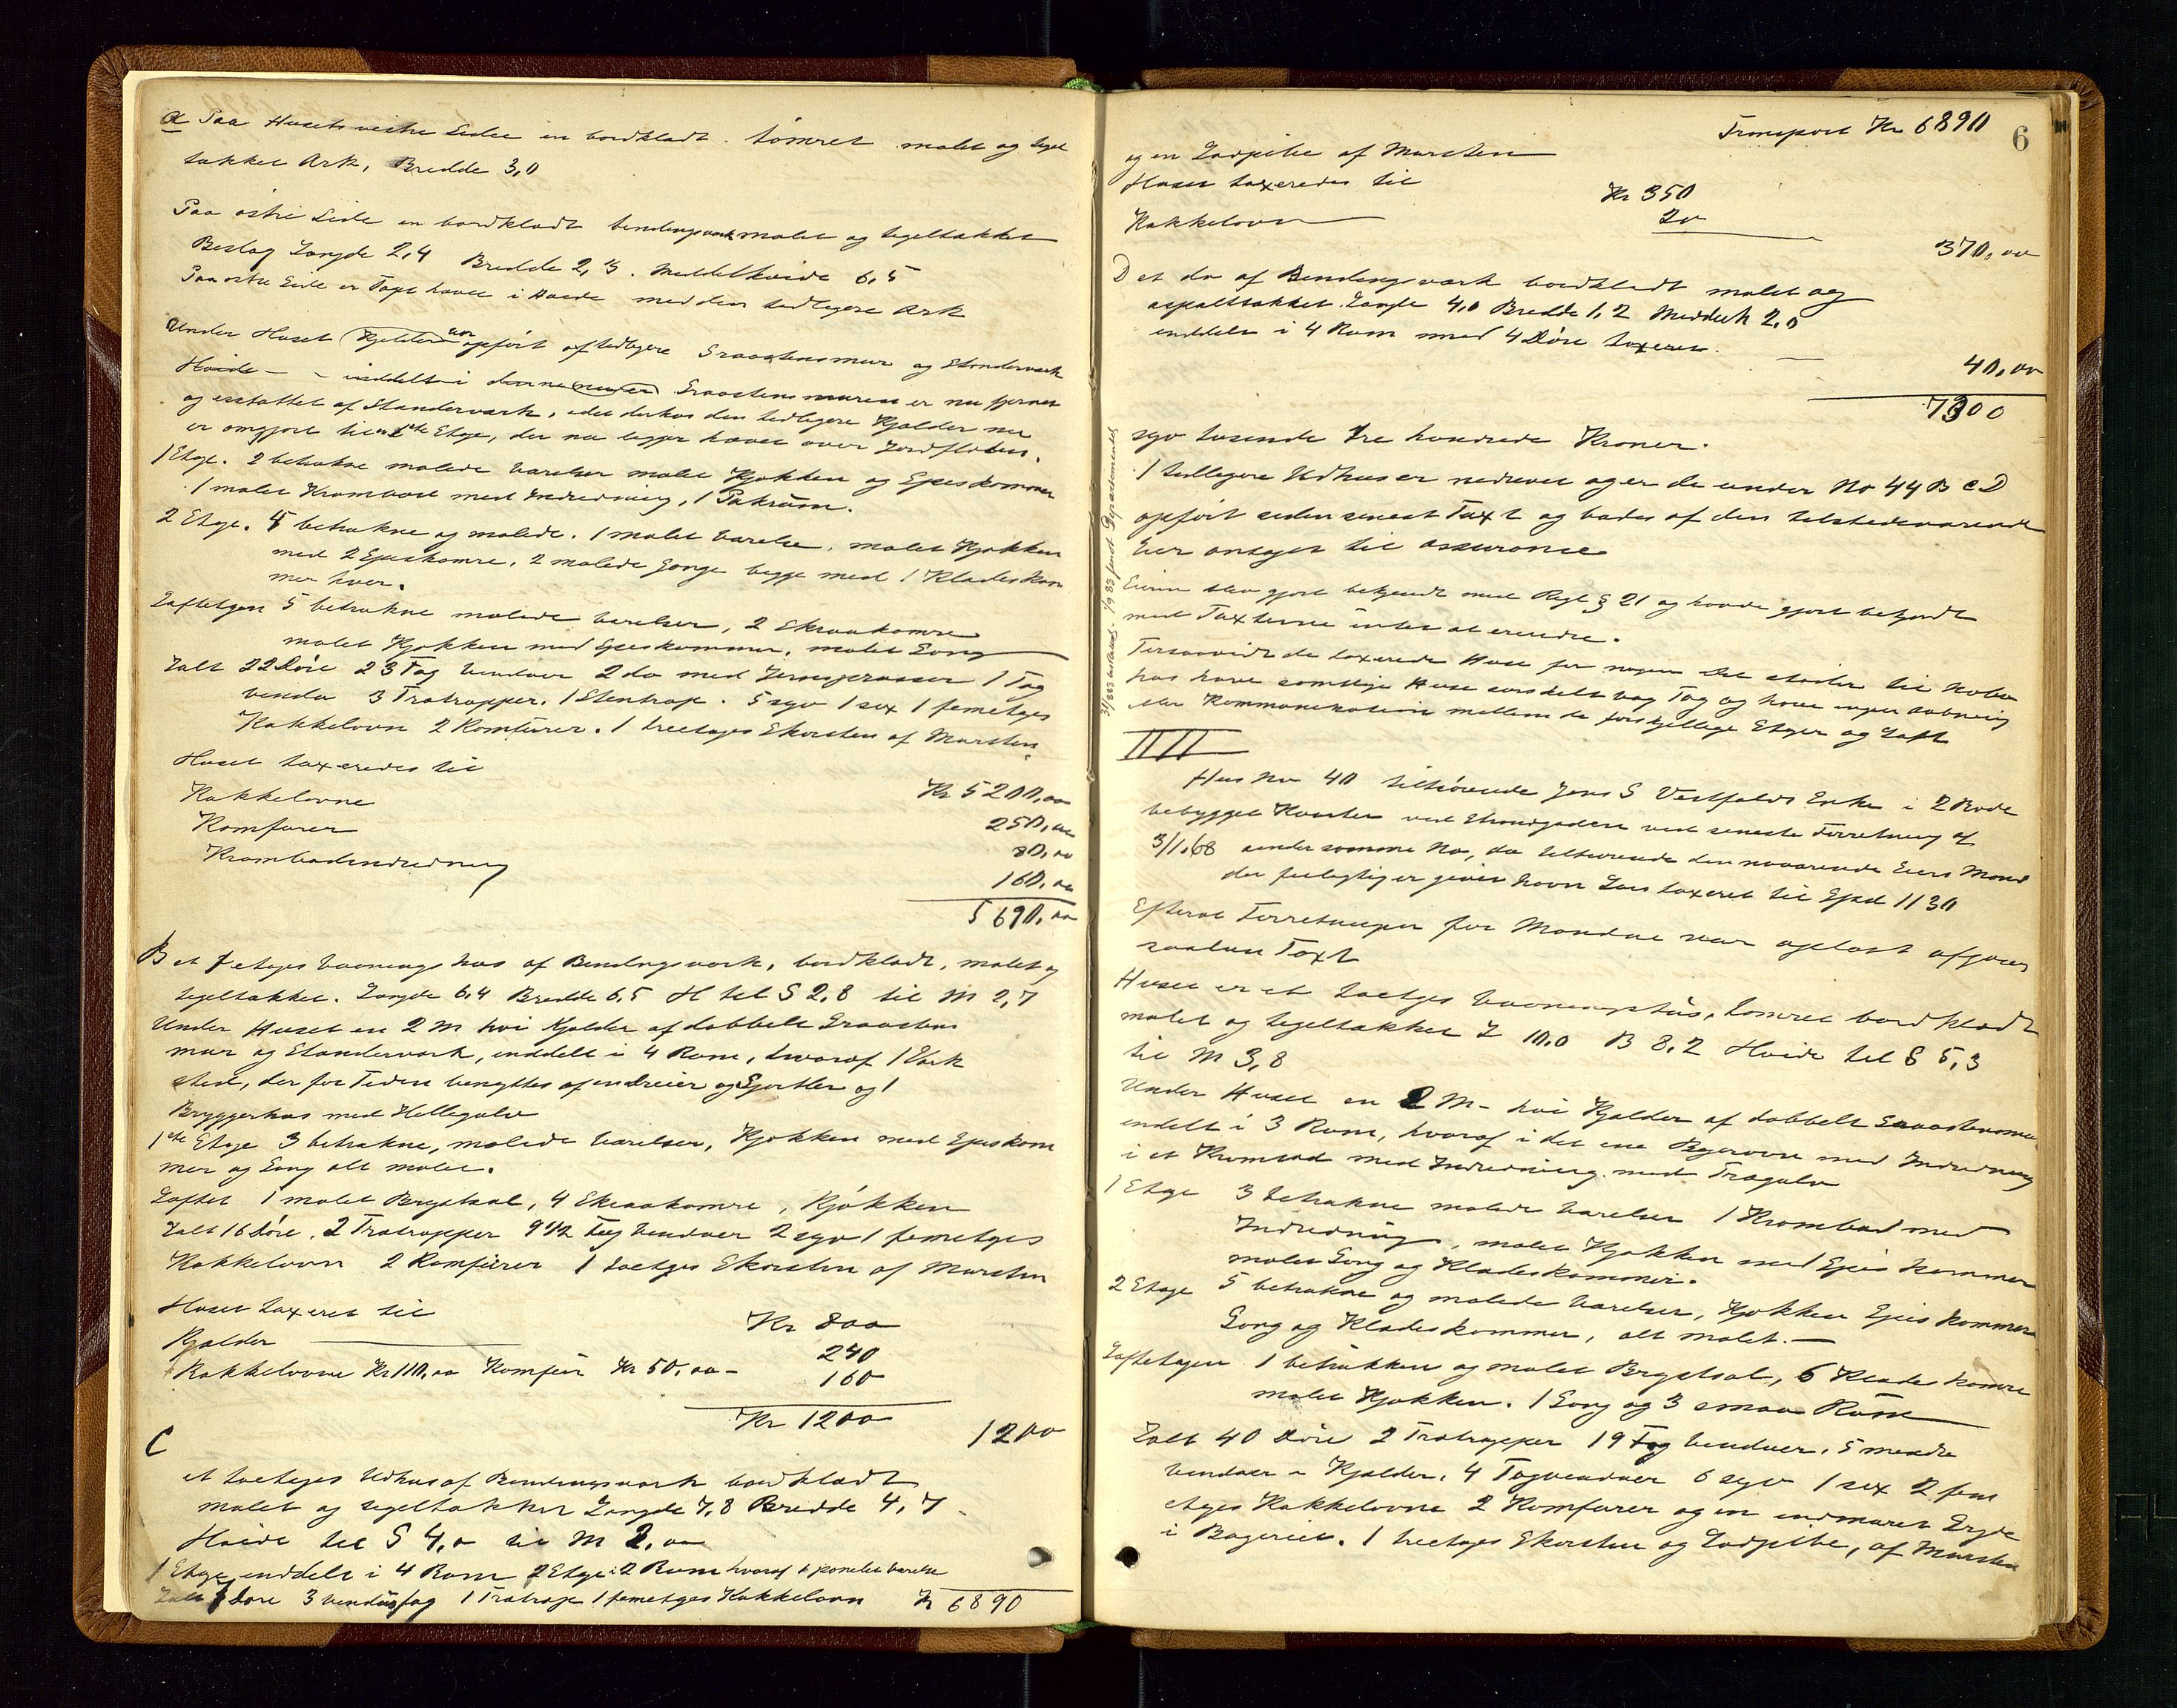 a Paa Husets vestre Side en bordklædt. tømret malet og tegl
tækket Ark, Bredde 3,0
Paa østre Side en bordklædt bindingsværk malet og tegeltækket
Beslag Længde 2,4 Bredde 2,3. Middelhøide 6,5
Paa østre Side er Taget hævet i Høide med den tidligere Ark
Under Huset Kjelder var opført af tidligere Graastensmur og Standerværk
Høide - - inddelt i Graastensmuren er nu fjernet
og erstattet af Standerværk, idet derhos den tidligere Kjælder nu
er omgjort til 1ste Etge, der nu ligger hævet over Jordfladen.
1 Etge. 2 betrukne malede Værelser malet Kjøkken og Speiskammer
1 malet Krambod med Indredning, 1 Pakrum.
2 Etge. 4 betrukne og malede. 1 malet Værelse, malet Kjøkken
med 2 Speiskamre, 2 malede Gange begge med 1 Klædeskam
mer hver.
Loftetgen 5 betrukne malede Værelser, 2 Skraakamre
malet Kjøkken med Speiskammer, malet Gang
Ialt 22 Døre 23 Fag Vinduer 2 do med Jernsprosser 1 Tag
vindu 3 Trætrapper. 1 Stentrap. 5 syv 1 sex 1 femetges
Kakkelovn 2 Komfurer. 1 treetages Skorsten af Mursten.
Huset taxeredes til Kr 5200,00
Kakkelovne 250,00
Komfurer 80,00
Krambodindredning 160,00
5690,00
B et 1 etages Vaaningshus af Bindingsværk, bordklædt, malet og
tegeltækket. Længde 6,4 Bredde 6,5 H til S 2,8 til M 2,7
Under Huset en 2 M høi Kjælder af dobbelt Graastens
mur og Standerværk, inddelt i 4 Rum, hvoraf 1 Værk
sted, der for Tiden benyttes af en Dreier og Gjørtler og 1
Bryggerhus med Hellegulv
1ste Etage 3 betrukne, malede Værelser, Kjøkken med Speiskam
mer og Gang alt malet.
Loftet 1 malet Brystsal, 4 Skraakamre, Kjøkken
Ialt 16 Døre. 2 Trætrapper 9 1/2 Fag Vinduer 2 syv 1 femetges
Kakkelovn 2 Komfurer 1 toetges Skorsten af Mursten
Huset taxeret til Kr 800
Kjælder 240
Kakkelovne Kr 110,00 Komfur Kr 50,00 - 160
Kr 1200 1200
C
et toetages Udhus af Bindingsværk bordklædt
malet og tegeltækket Længde 7,8 Bredde 4,7
Høide til S 4,0 til M 2,00
1 Etage inddelt i 4 Rum 2 Etge i 2 Rum hvoraf panelet Værelse
Ialt Døre 3 Vindusfag 1 Trætrap 1 femetges Kakkelovn Kr 6890
Transport Kr 6890 6
og en Ladpibe af Mursten
Huset taxeredes til Kr 350
Kakkelovn 20
370,00
D et do af Bindingsværk bordklædt malet og
aspaltækket. Længde 4,0 Bredde 1,2 Middelh 2,0
inddelt i 4 Rum med 4 Døre taxeres
40,00
7300
syv tusende tre hundrede Kroner.
1 tidligere Udhus er nedrevet og er de under No 44 B C D
opført siden senest Taxt og bades af den tilstedeværende
Eier antaget til Assurance
Eieren blev gjort bekjendt med Regl § 21 og havde gjort bekjendt
med Taxterne intet at erindre.
Forsaavidt de taxerede Huse for nogen Del støder til Nabo
hus have samtlige Huse særskilt Væg Tag og have ingen Aabning
eller Kommunikation mellem de forskjellige Etger og Loft
III
Hus No 40 tilhørende Jens S Vestfalds Enke i 2 Rode
bebygget Kvarter ved Strandgaden ved seneste Forretning af
3/1.68 under samme No, da tilhørende den nuværende Eiers Mand
der feilagtig er given Navn Lars taxeret til Spd 1130
Efterat Forretningen for Mandene var oplæst afgaves
saadan Taxt
Huset er et toetges Vaaningshus, tømret bordklædt
malet og tegeltækket L 10.0 B 8.2 Høide til S 5,3
til M 3,8
Under Huset en 2 M- høi Kjælder af dobbelt Graastensmur
indelt i 3 Rum, hvoraf i det ene Bagerovn med Indredning
i et Krambod med Indredning. med Trægulv
1 Etage 3 betrukne malede Værelser 1 Krambod med
Indredning, malet Kjøkken med Speiskammer
malet Gang og Klædeskammer.
2 Etage 5 betrukne og malede Værelser, Kjøkken Speiskammer
Gang og Klædeskammer, alt malet. -
Loftetagen 1 betrukken og malet Brystsal, 6 Klædeskamre
malet Kjøkken. 1 Gang og 3 smaa Rum
Ialt 40 Døre 2 Trætrapper 19 Fag Vinduer. 5 mindre
Vinduer i Kjælder. 4 Tagvinduer 6 syv 1 sex 2 fem
etges Kakkelovne 2 Komfurer og en indmuret Gryde
i Bageriet. 1 treetages Skorsten og Ladpibe, af Mursten